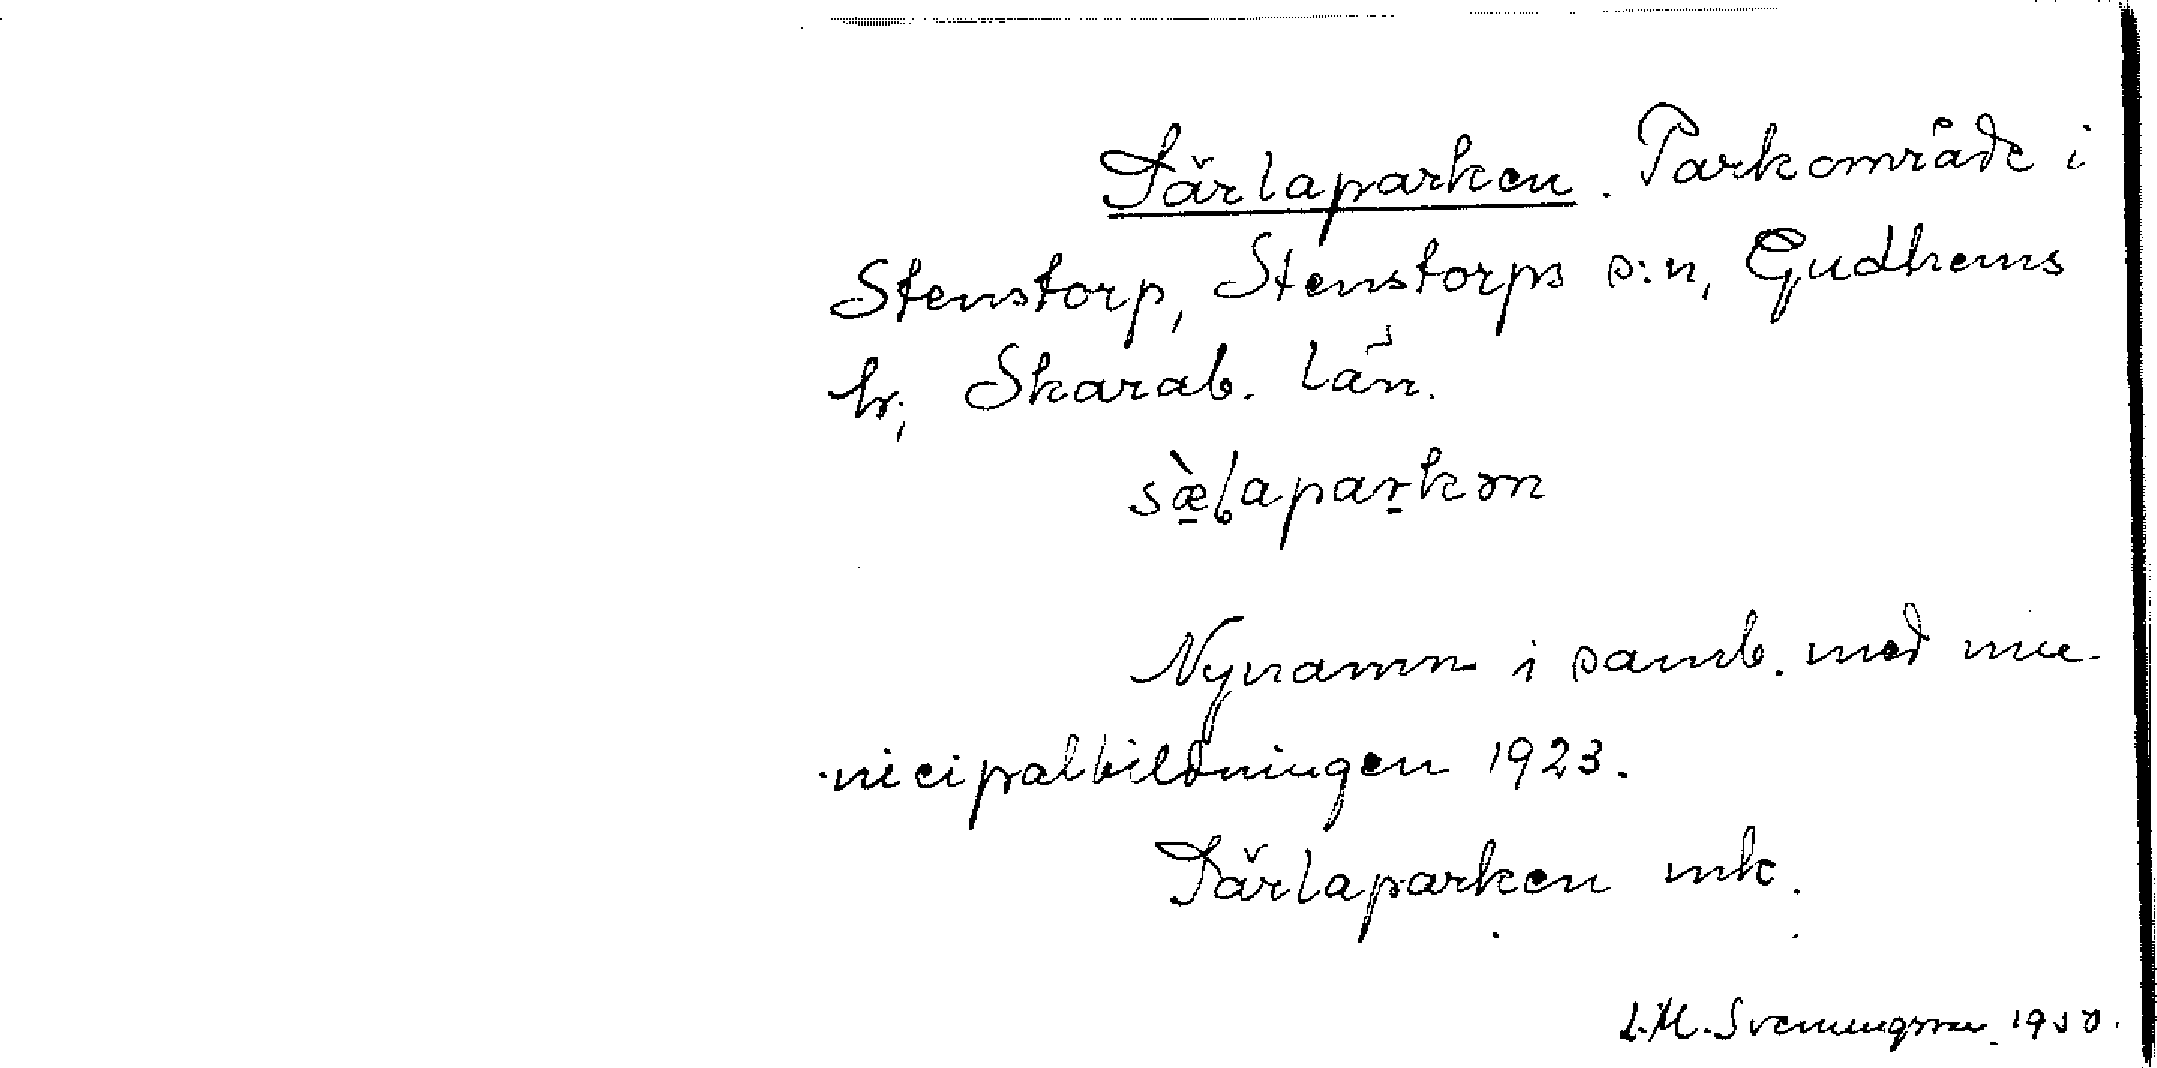 Särlaparken. Parkområde i
Stenstorp, Stenstorps s:n, Gudhems
hr, Skarab. län.
sæ̀ḷapaṟkən
Nynamn i samb. med mu-
nicipalbildningen 1923.
Särlaparken mk.
L.M. Svenungsson 1950.